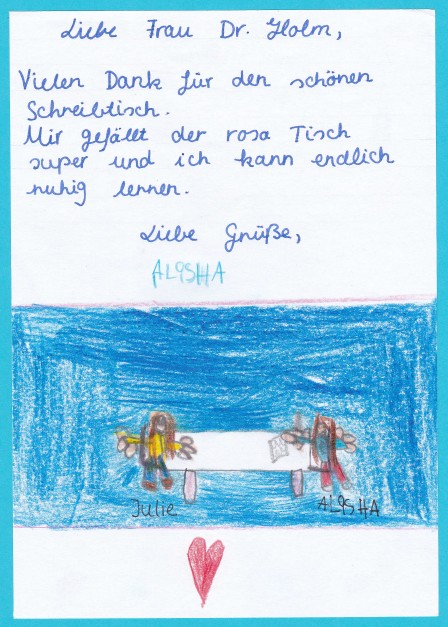 Liebe Frau Dr. Holm,
Vielen Dank für den schönen
Schreibtisch.
Mir gefällt der rosa Tisch
super und ich kann endlich
ruhig lernen.
Liebe Grüße,
ALISHA
Julie
ALISHA